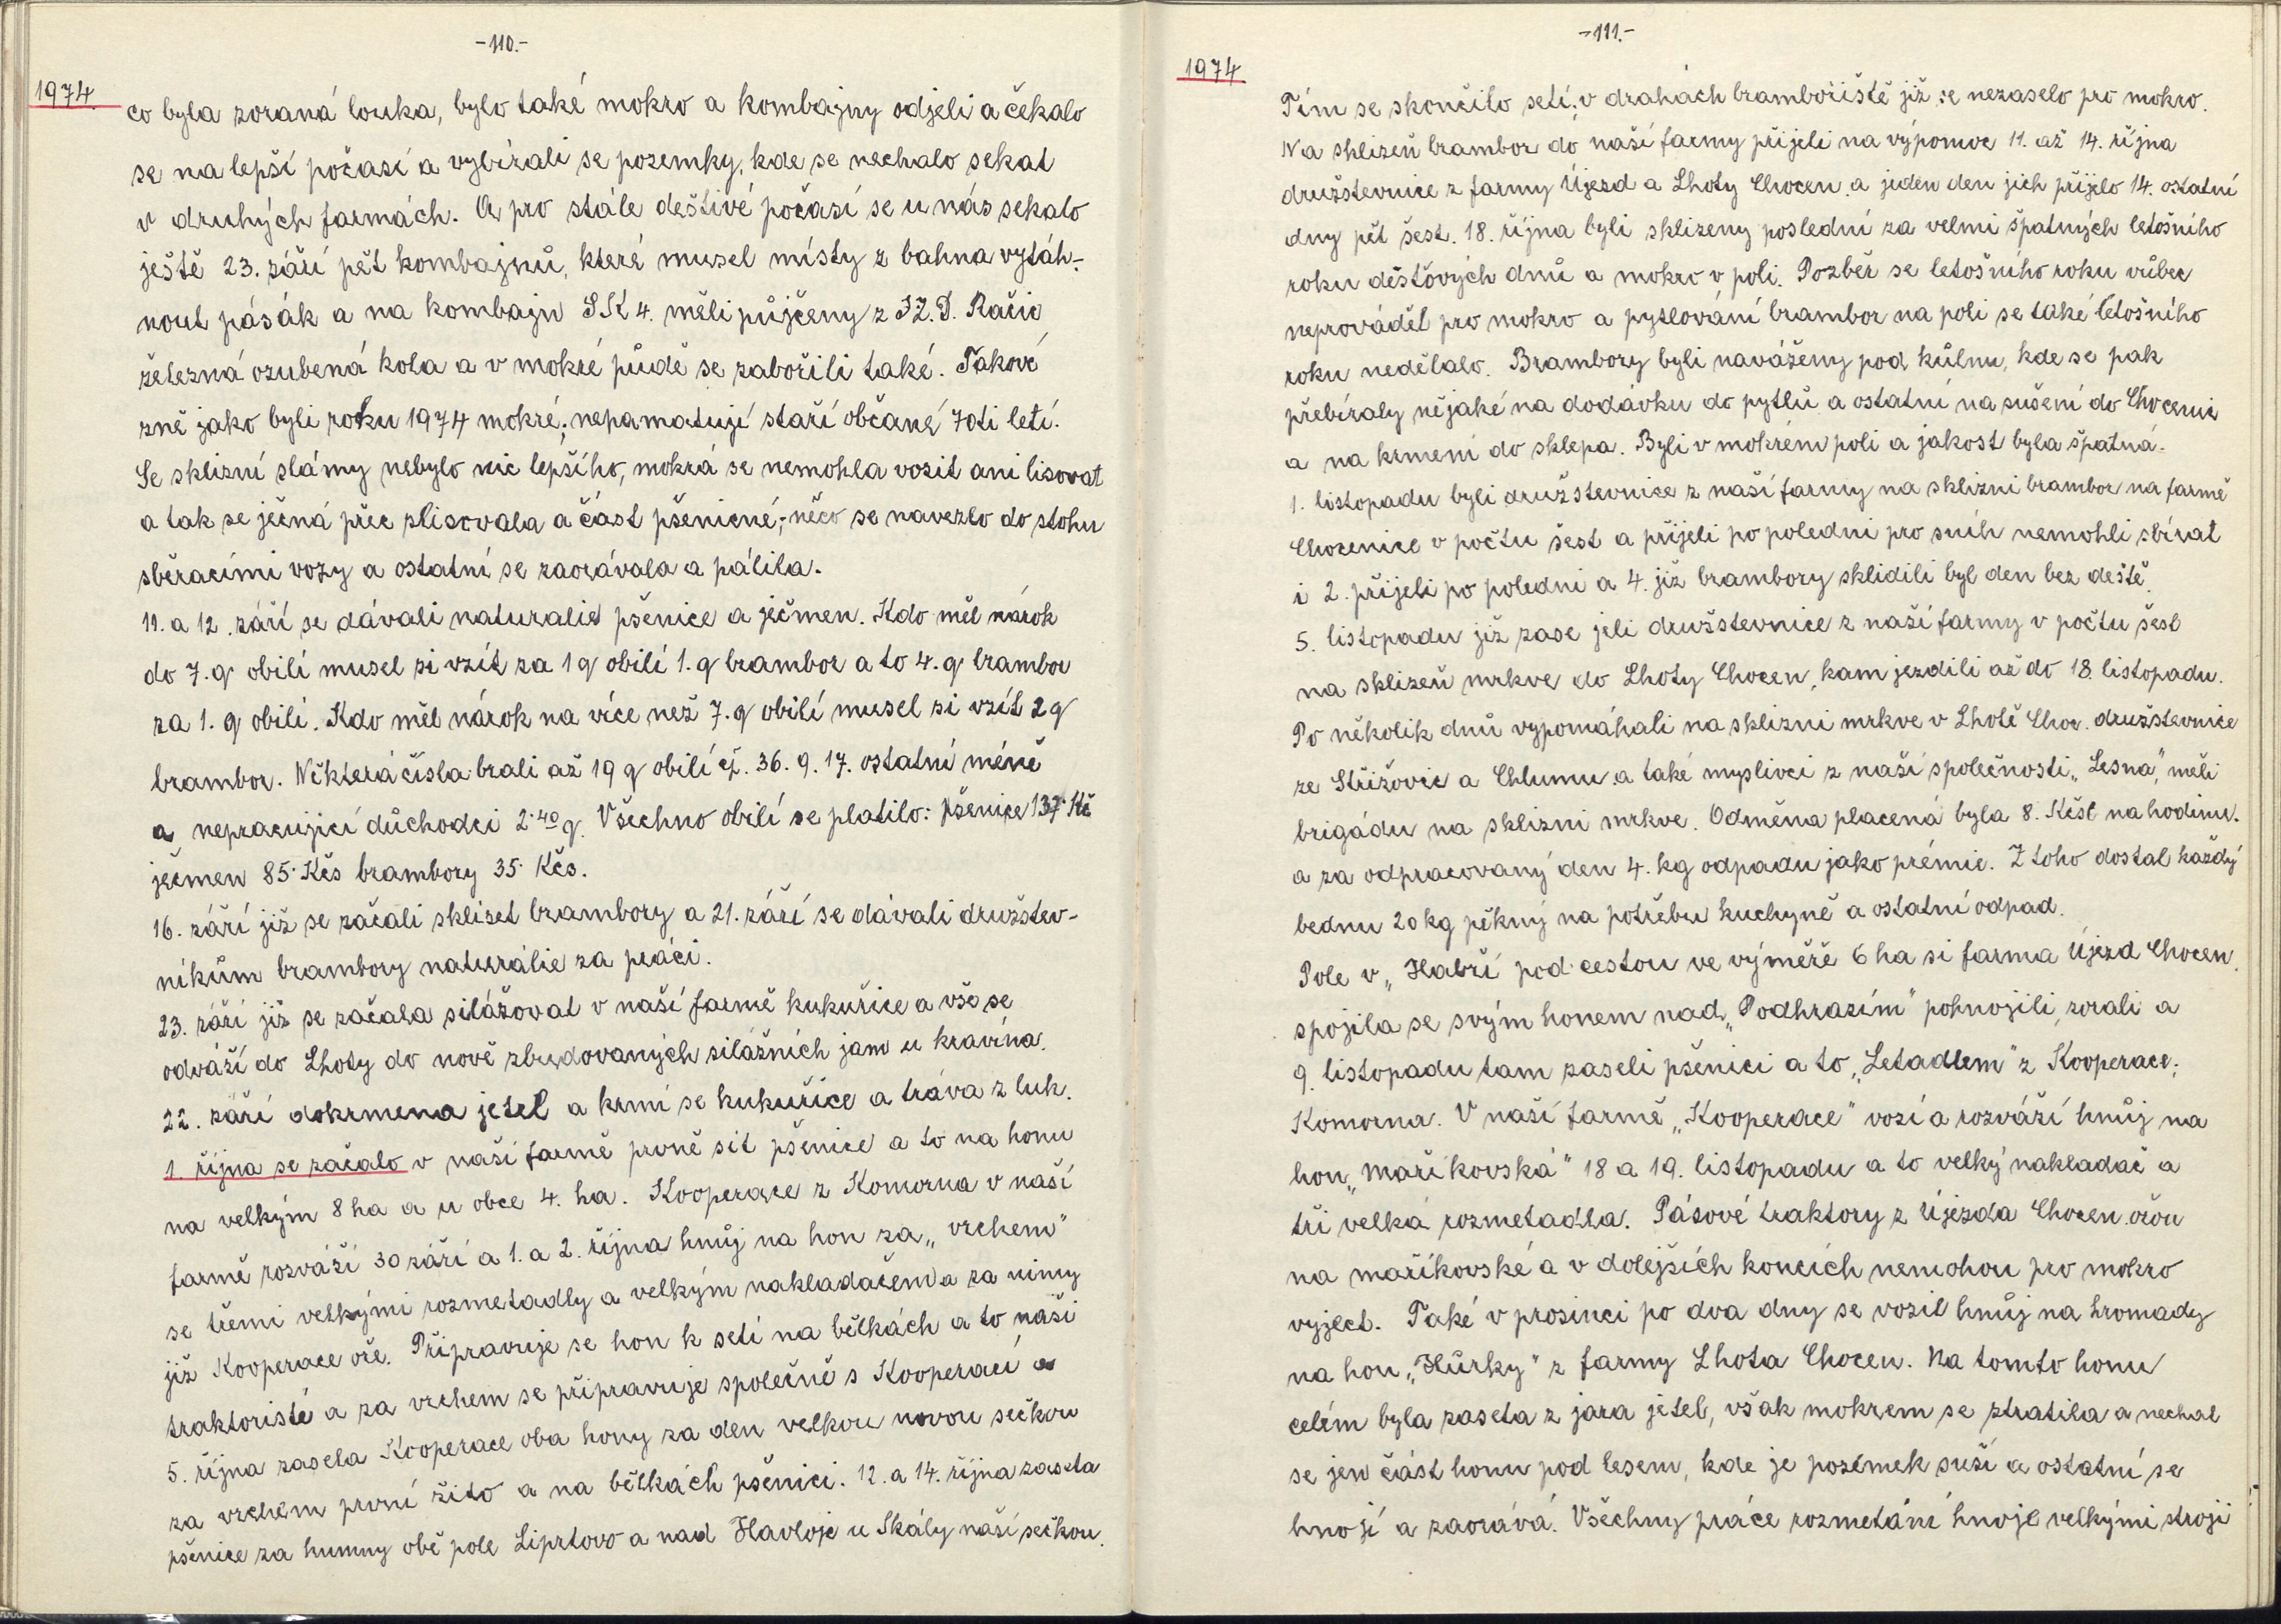 -110.-
1974.
co byla zoraná louka, bylo také mokro a kombajny odjeli a čekalo
se na lepší počasí a vybírali se pozemky, kde se nechalo sekat
v druhých farmách. A pro stále deštivé počasí se u nás sekalo
ještě 23. září pět kombajnů, které musel místy z bahna vytáh-
nout pásák a na kombajn SK 4. měli půjčeny z JZ.D. Račic
železná ozubená kola a v mokré půdě se zabořili také. Takové
zně jako byli roku 1974 mokré, nepamatují staří občané 70ti letí.
Se sklizní slámy nebylo nic lepšího, mokrá se nemohla vozit ani lisovat
a tak se ječná přec slisovala a část pšeničné, něco se navezlo do stohu
sběracími vozy a ostatní se zaorávala a pálila.
11. a 12. září se dávali naturalie pšenice a ječmen. Kdo měl nárok
do 7. q obilí musel si vzít za 1 q obilí 1. q brambor a to 4. q brambor
za 1. q obilí. Kdo měl nárok na více než 7. q obilí musel si vzít 2 q
brambor. Některá čísla brali až 19 q obilí čj. 36. 9. 17. ostatní méně
a nepracující důchodci 2.40 q. Všechno obilí se platilo: pšenice 137 Kč
ječmen 85. Kčs brambory 35. Kčs.
16. září již se začali skliset brambory a 21. září se dávali družstev-
níkům brambory naturálie za práci.
23. září již se začala silážovat v naší farmě kukuřice a vše se
odváží do Lhoty do nově zbudovaných silážních jam u kravína.
22. září dokrmena jetel a krmí se kukuřice a tráva z luk.
1. října se začalo v naší farmě prvně sít pšenice a to na honu
na velkým 8 ha a u obce 4. ha. Kooperace z Komorna v naší
farmě rozváží 30 září a 1. a 2. října hnůj na hon za „vrchem"
se třemi velkými rozmetadly a velkým nakladačem a za nimy
již Kooperace oře. Připravuje se hon k setí na bělkách a to naši
traktoristé a za vrchem se připravuje společně s Kooperací a
5. října zasela Kooperace oba hony za den velkou novou sečkou
za vrchem první žito a na bělkách pšenici. 12. a 14. října zaseta
pšenice za humny obě pole Liprtovo a nad Havloje u Skály naší sečkou.
-111.-
1974
Tím se skončilo setí; v drahách bramboŕiště již se nezaselo pro mokro.
Na sklizeň brambor do naší farmy přijeli na výpomoc 11. až 14. října
družstevnice z farmy Újezd a Lhoty Chocen. a jeden den jich přijelo 14. ostatní
dny pět šest. 18. října byli sklizeny poslední za velmi špatných letošního
roku děšťových dnů a mokro v poli. Pozběr se letošního roku vůbec
neprováděl pro mokro a pytlování brambor na poli se také letošního
roku nedělalo. Brambory byli naváženy pod kůlnu, kde se pak
přebíraly nějaké na dodávku do pytlů a ostatní na sušení do Chocenic
a na krmení do sklepa. Byli v mokrém poli a jakost byla špatná.
1. listopadu byli družstevnice z naší farmy na sklizni brambor na farmě
Chocenice v počtu šest a přijeli po poledni pro sníh nemohli sbírat
i 2. přijeli po poledni a 4. již brambory sklidili byl den bez deště.
5. listopadu již zase jeli družstevnice z naší farmy v počtu šest
na sklizeň mrkve do Lhoty Chocen, kam jezdili až do 18. listopadu.
Po několik dnů vypomáhali na sklizni mrkve v Lhotě Choc. družstevnice
ze Střížovic a Chlumu a také myslivci z naší společnosti „Lesná", měli
brigádu na sklizni mrkve. Odměna placená byla 8. Kčst na hodinu.
a za odpracovaný den 4. kg odpadu jako prémie. Z toho dostal každý
bednu 20 kg pěkný na potřebu kuchyně a ostatní odpad.
Pole v „Habří pod cestou ve výměře 6 ha si farma Újezd Chocen.
spojila se svým honem nad „Podhrazím" pohnojili, zorali a
9. listopadu tam zaseli pšenici a to „Letadlem" z Kooperace,
Komorna. V naší farmě „Kooperace" vozí a rozváží hnůj na
hon „Maříkovská" 18 a 19. listopadu a to velký nakladač a
tři velká rozmetadla. Pásové traktory z Újezda Chocen. ořou
na maříkovské a v dolejších koncích nemohou pro mokro
vyject. Také v prosinci po dva dny se vozil hnůj na hromady
na hon „Hůrky" z farmy Lhota Chocen. Na tomto honu
celém byla zaseta z jara jetel, však mokrem se ztratila a nechal
se jen část honu pod lesem, kde je pozemek suší a ostatní se
hnojí a zaorává. Všechny práce rozmetání hnoje velkými stroji